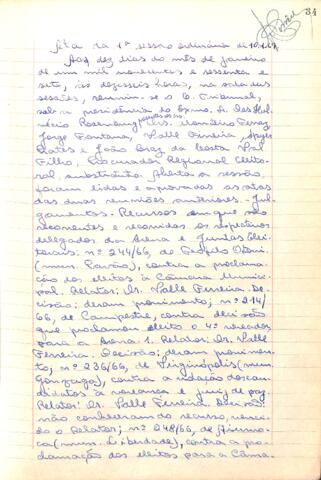 34
Ata da 1ª sessão ordinária de 10.1.67.
Aos dez dias do mês de janeiro
de um mil novecentos e sessenta e
sete, às dezesseis horas, na sala das
sessões, reuniu-se o E. Tribunal,
sob a presidência do Exmo. Sr. Des.
Rosenburg. Presentes os Srs. Ferraz,
Jorge Fontana, Valle Ferreira,
e João Braz da Costa Val
Filho, Procurador Regional Eleito-
ral substituto. Aberta a sessão,
foram lidas e aprovadas as atas
das duas reuniões anteriores. - Jul-
gamentos. - Recursos em que são
recorrentes e recorridos os respectivos
delegados da Arena e Juntas Elei-
torais: nº 244/66, de Teófilo Otoni
(mun. Pavão), contra a proclama-
ção dos eleitos à Câmara Munici-
pal. Relator: Dr. Valle Ferreira. De-
cisão: deram provimento; nº 214/
66, de Campestre, contra decisão
que proclamou eleito o 4º vereador
para a Arena 1. Relator: Dr. Valle
Ferreira. Decisão: deram provimen-
to; nº 236/66, de Virginópolis (mun.
Gonzaga), contra a votação dos can-
didatos a vereança e juiz de paz.
Relator: Dr. Valle Ferreira. Decisão:
não conheceram do recurso, venci-
do o Relator; nº 248/66, de
(mun. Liberdade), contra a pro-
clamação dos eleitos para a Câma-